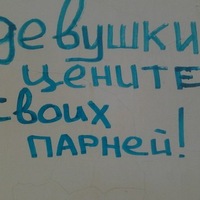 девушки
цените
своих
парней!